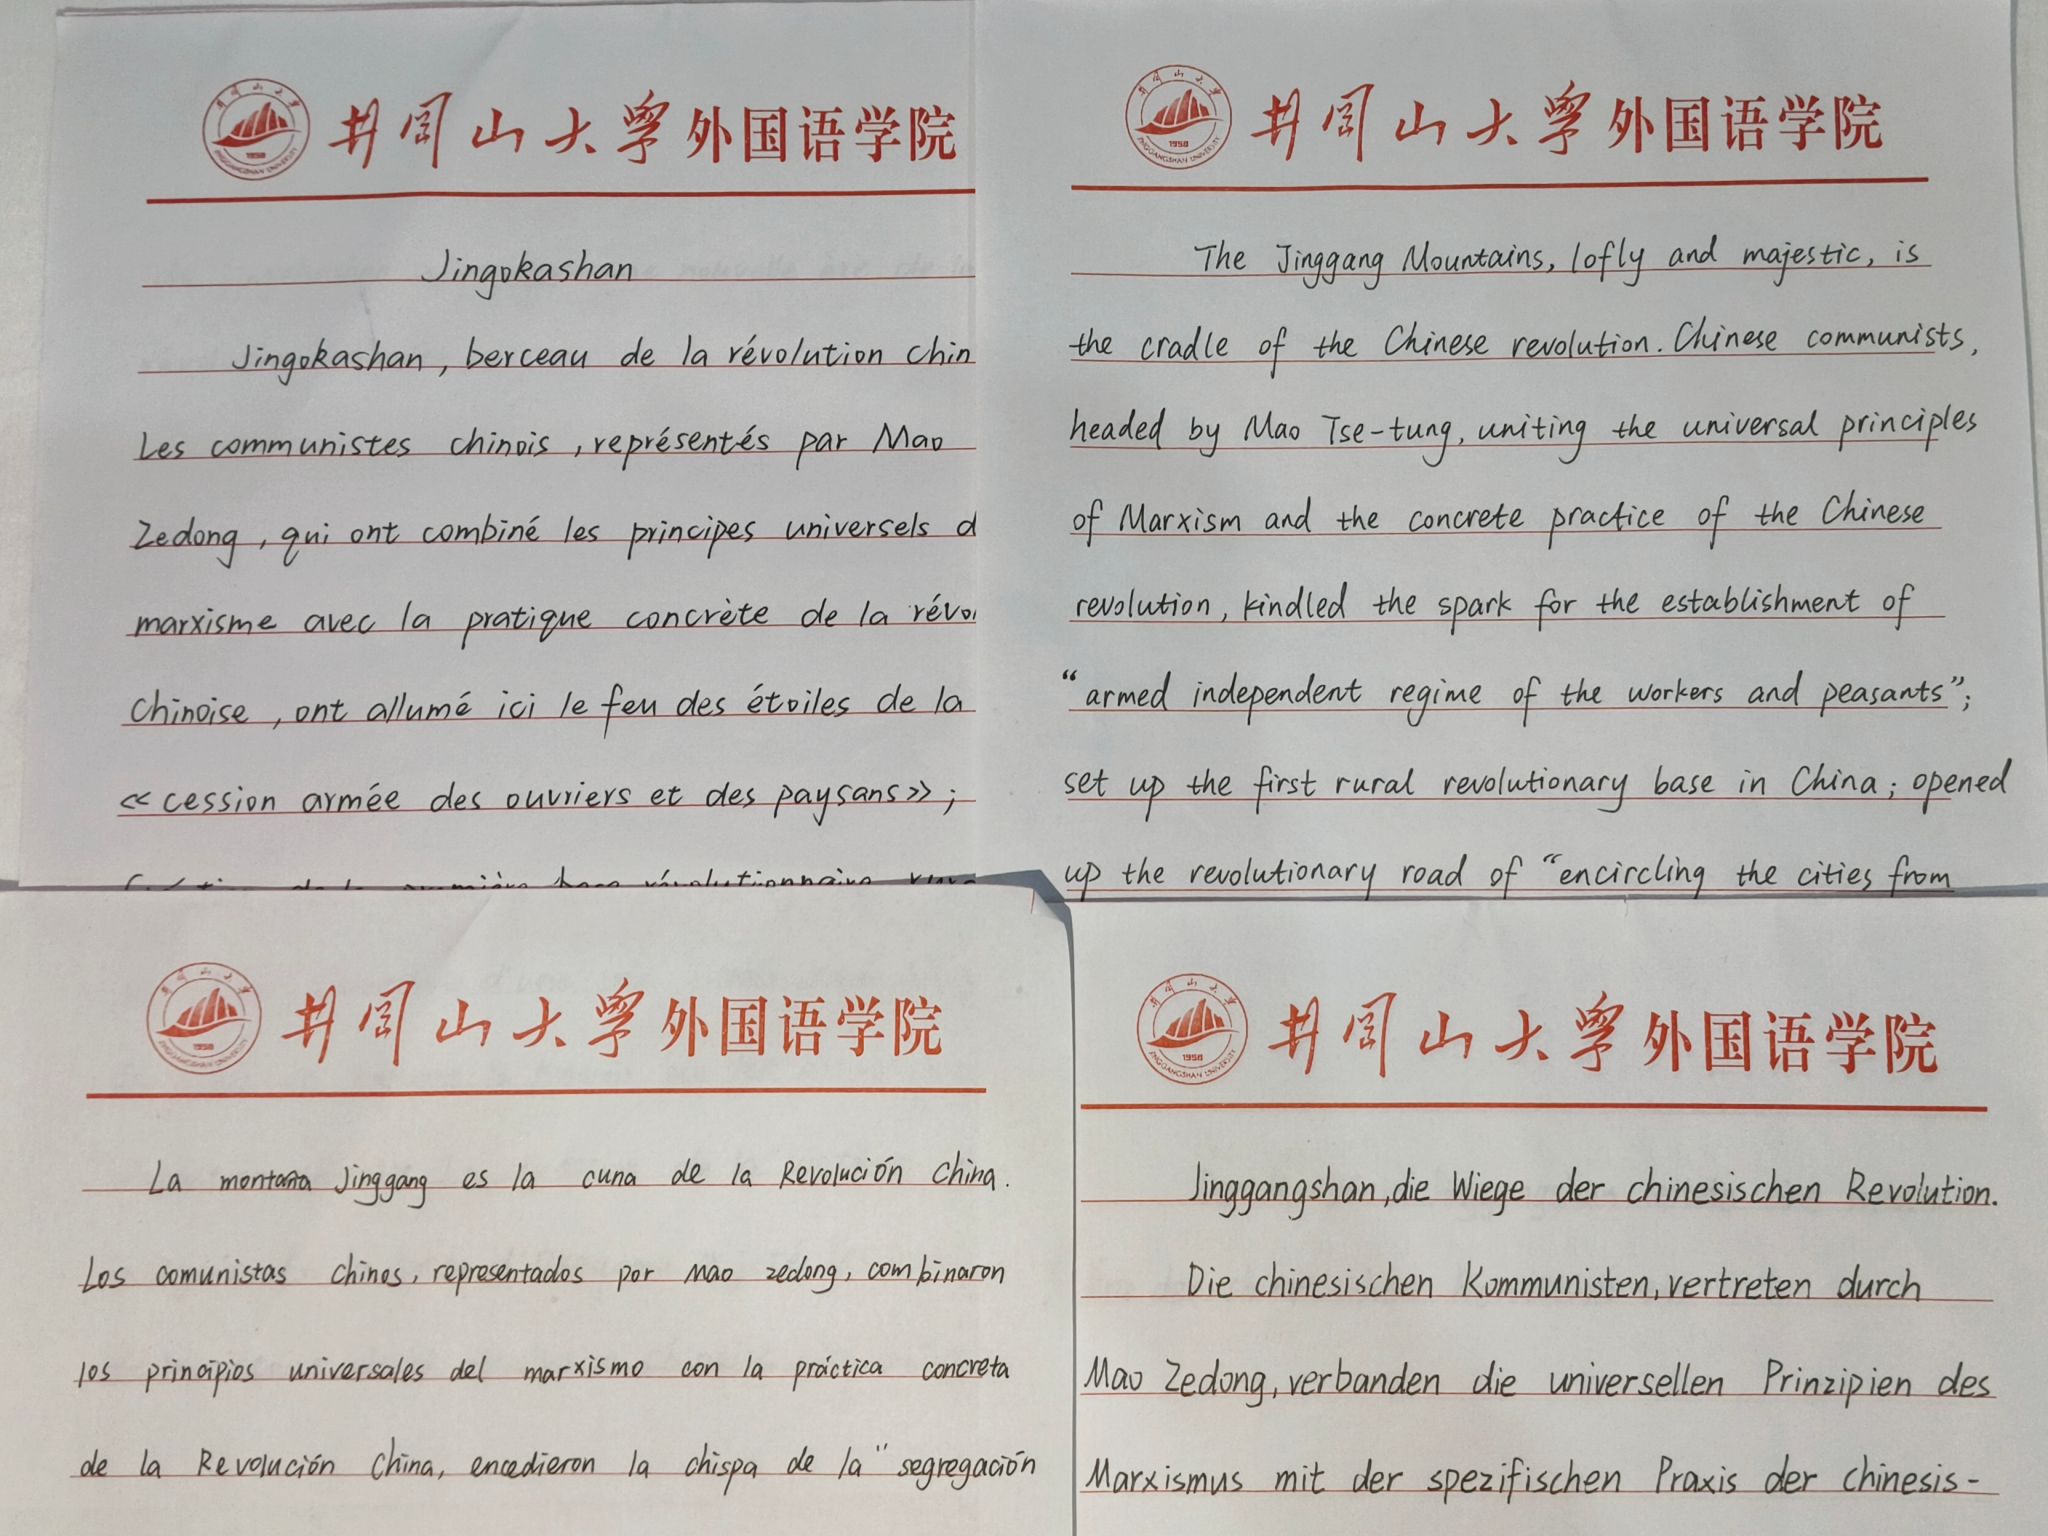 井冈山大学外国语学院
Jingokashan
Jingokashan, berceau de la révolution chin
Les communistes chinois, représentés par Mao
Zedong, qui ont combiné les principes universels d
marxisme avec la pratique concrète de la révo
Chinoise, ont allumé ici le feu des étoiles de la
<<cession armée des ouvriers et des paysans>>;
井冈山大学外国语学院
The Jinggang Mountains, lofly and majestic, is
the cradle of the Chinese revolution. Chinese communists,
headed by Mao Tse-tung, uniting the universal principles
of Marxism and the concrete practice of the Chinese
revolution, kindled the spark for the establishment of
“armed independent regime of the workers and peasants”;
set up the first rural revolutionary base in China; opened
up the revolutionary road of “encircling the cities from
井冈山大学外国语学院
La montaña Jinggang es la cuna de la Revolución China.
Los comunistas chinos, representados por Mao zedong, combinaron
los principios universales del marxismo con la práctica concreta
de la Revolución China, encedieron la chispa de la “segregación
井冈山大学外国语学院
Jinggangshan, die Wiege der chinesischen Revolution.
Die chinesischen Kommunisten, vertreten durch
Mao Zedong, verbanden die universellen Prinzipien des
Marxismus mit der spezifischen Praxis der chinesis-